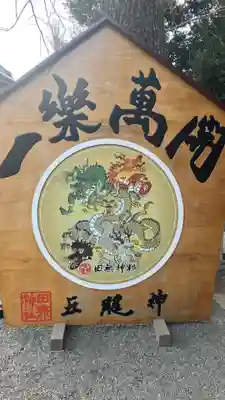 一樂萬開
田無神社
五龍神
田無
神社